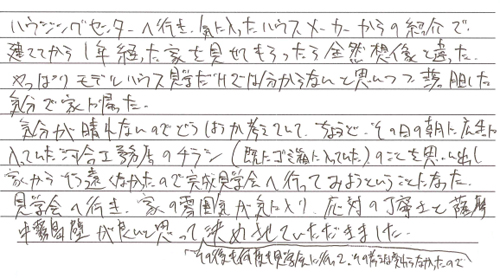 ハウジングセンターへ行き、気に入ったハウスメーカーからの紹介で、
建ててから1年経った家を見せてもらったら全然想像と違った。
やっぱりモデルハウス見学だけでは分からないと思いつつ、落胆した
気分で家に帰った。
気分が晴れないのでどうしようか考えていて、ちょうど、その日の朝に広告に
入っていた河合工務店のチラシ(既にゴミ箱に入っていた)のことを思い出し
家からそう遠くなかったので完成見学会へ行ってみようということになった。
見学会へ行き、家の雰囲気が気に入り、応対の丁寧さと
が良いと思って決めさせていただきました。
その後も何度も見学会に行って、その考えは変わらなかったので